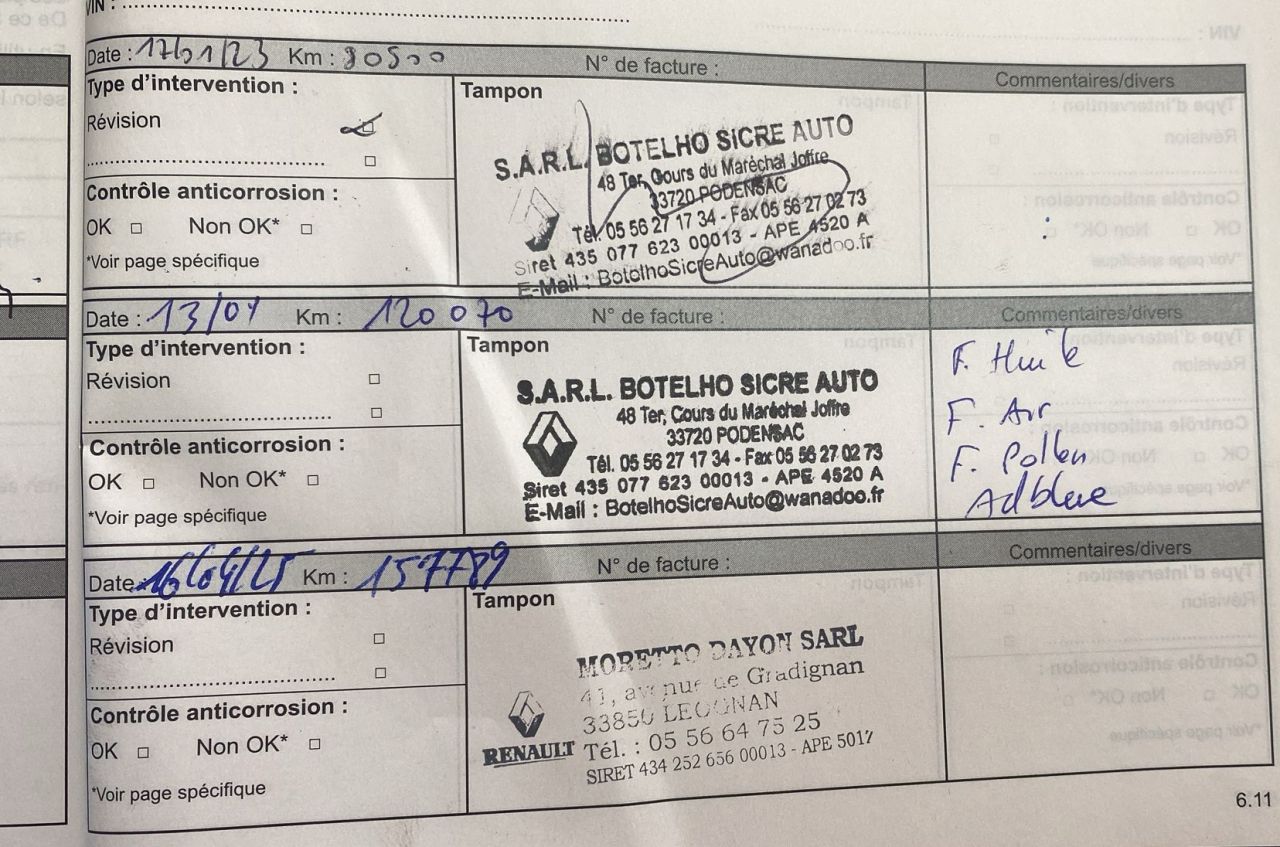 VIN :
Date : 17/01/23 Km : 90500 N° de facture : Commentaires/divers
Type d'intervention :
Révision
Contrôle anticorrosion :
OK Non OK*
*Voir page spécifique
Tampon
S.A.R.L. BOTELHO SICRE AUTO
48 Ter, Cours du Maréchal Joffre
33720 PODENSAC
Tél. 05 56 27 17 34 - Fax 05 56 27 02 73
Siret 435 077 623 00013 - APE 4520 A
E-Mail : BotelhoSicreAuto@wanadoo.fr
Date : 13/04 Km : 120 070 N° de facture : Commentaires/divers
Type d'intervention :
Révision
Contrôle anticorrosion :
OK Non OK*
*Voir page spécifique
Tampon
S.A.R.L. BOTELHO SICRE AUTO
48 Ter, Cours du Maréchal Joffre
33720 PODENSAC
Tél. 05 56 27 17 34 - Fax 05 56 27 02 73
Siret 435 077 623 00013 - APE 4520 A
E-Mail : BotelhoSicreAuto@wanadoo.fr
F. Huile
F. Air
F. Pollen
Adblue
Date 16/04/25 Km : 157789 N° de facture : Commentaires/divers
Type d'intervention :
Révision
Contrôle anticorrosion :
OK Non OK*
*Voir page spécifique
Tampon
MORETTO DAYON SARL
41, avenue de Gradignan
33850 LEOGNAN
RENAULT Tél. : 05 56 64 75 25
SIRET 434 252 656 00013 - APE 501Z
6.11